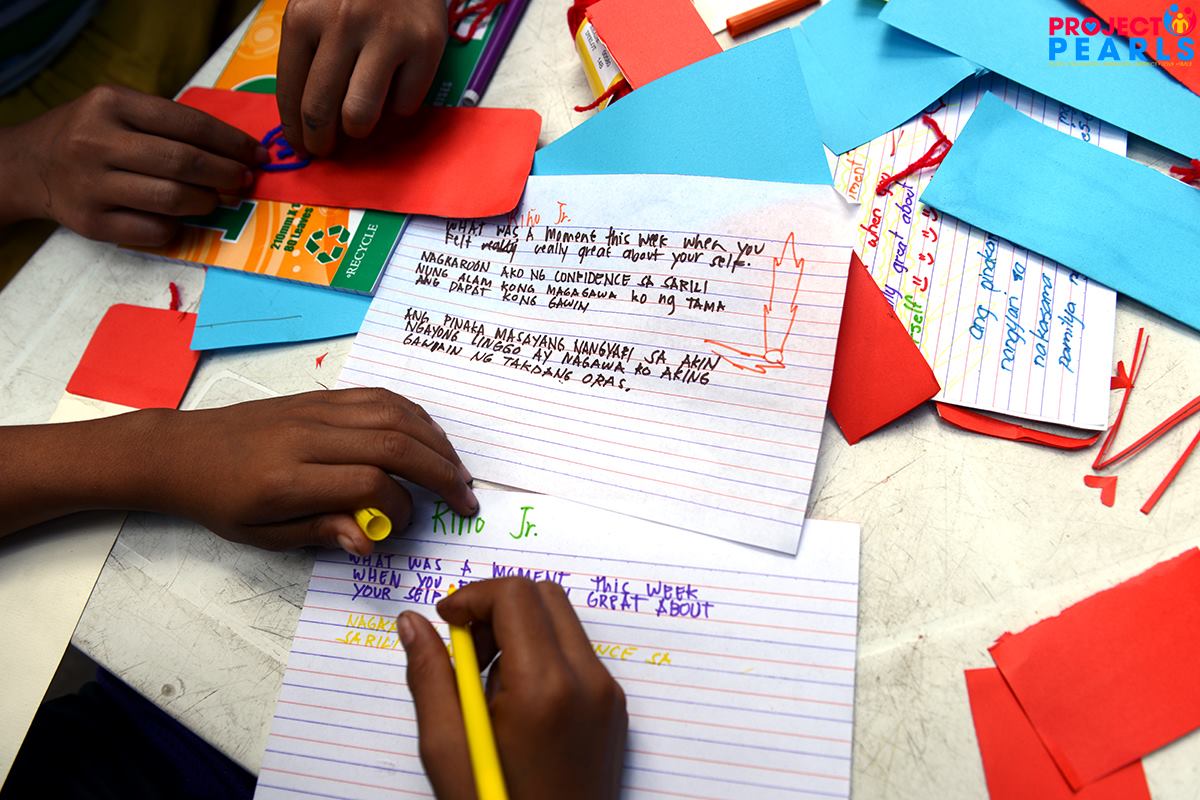 PROJECT
PEARLS
210mm X
80 Leaves
RECYCLE
Riño Jr.
WHAT WAS A MOMENT this WEEK WHEN YOU
Felt really really great about your self.
NAGKAROON AKO NG CONFIDENCE SA SARILI
NUNG ALAM KONG MAGAGAWA KO NG TAMA
ANG DAPAT KONG GAWIN
ANG PINAKA MASAYANG NANGYARI SA AKIN
NGAYONG LINGGO AY NAGAWA KO AKING
GAWAIN NG TAKDANG ORAS.
when you
great about
ang
nangyari sa
nakasama
pamilya
Riño Jr.
WHAT WAS A MOMENT this WEEK
WHEN YOU GREAT ABOUT
YOUR SELF
SARILI SA